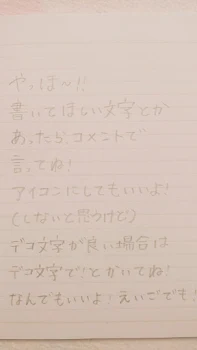 やっほ〜!!
書いてほしい文字とか
あったら、コメントで
言ってね!
アイコンにしてもいいよ!
(しないと思うけど)
デコ文字が良い場合は
デコ文字で!とかいてね!
なんでもいいよ!えいごでも!